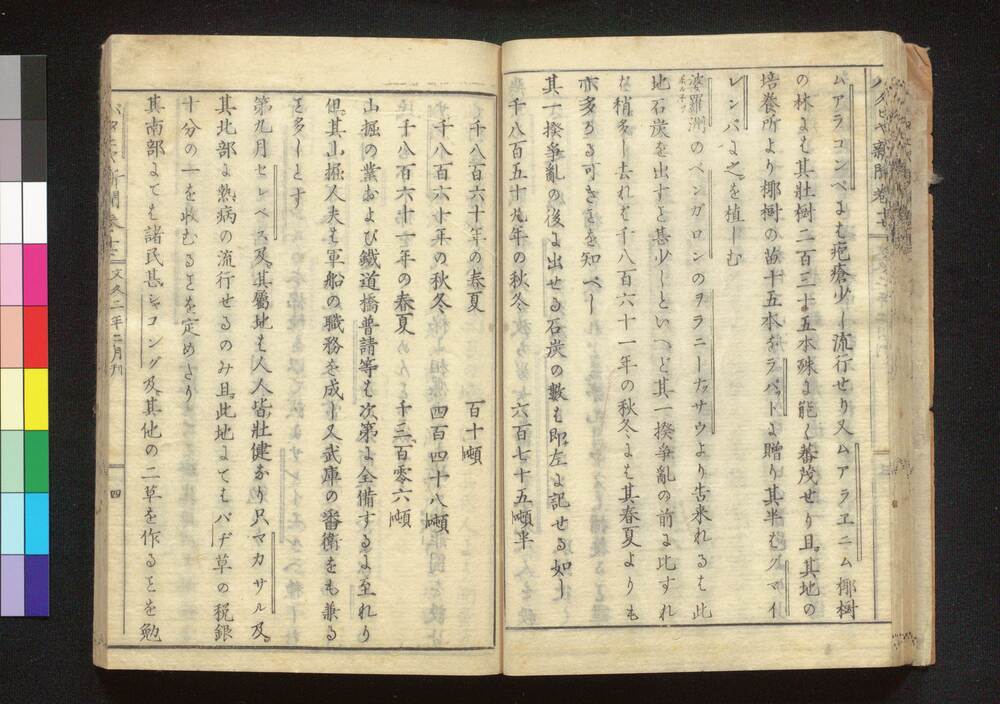 バタヒヤ新聞巻十二
ムアラコンペよも疱瘡少し流行せり又ムアラヱニム椰樹
の林よも其壯樹二百三十五本殊よ能く蕃茂せり且其地の
培養所より椰樹の苗十五本をラハットよ贈り其半をグマイ
レンバよ之を植しむ
婆羅洲のペンガロンのヲラニーナッサウより告来れるも此
地石炭を出すと甚少しといへど其一揆爭亂の前よ比すれ
ば稍多し去れども千八百六十一年の秋冬よも其春夏よりも
亦多かる可きとを知べし
其一揆爭亂の後よ出せる石炭の數も即左よ記せる如し
千八百五十九年の秋冬 六百七十五噸半
千八百六十年の春夏 百十噸
千八百六十年の秋冬 四百四十八噸
千八百六十一年の春夏 千三百零六噸
山掘の業および鐵道橋普請等も次第よ全備するよ至れり
但其山掘人夫も軍船の職務を成し又武庫の番衛をも兼る
と多しとす
第九月セレベス及其屬地も人人皆壯健なり只マカサル及
其北部よ熱病の流行せるのみ且此地よてもパヂ草の税銀
十分の一を收むるとを定めたり
其南部よても諸民甚シヤコング及其他の二草を作ることを勉
バタヒヤ新聞巻十二 文久二年二月刊 四